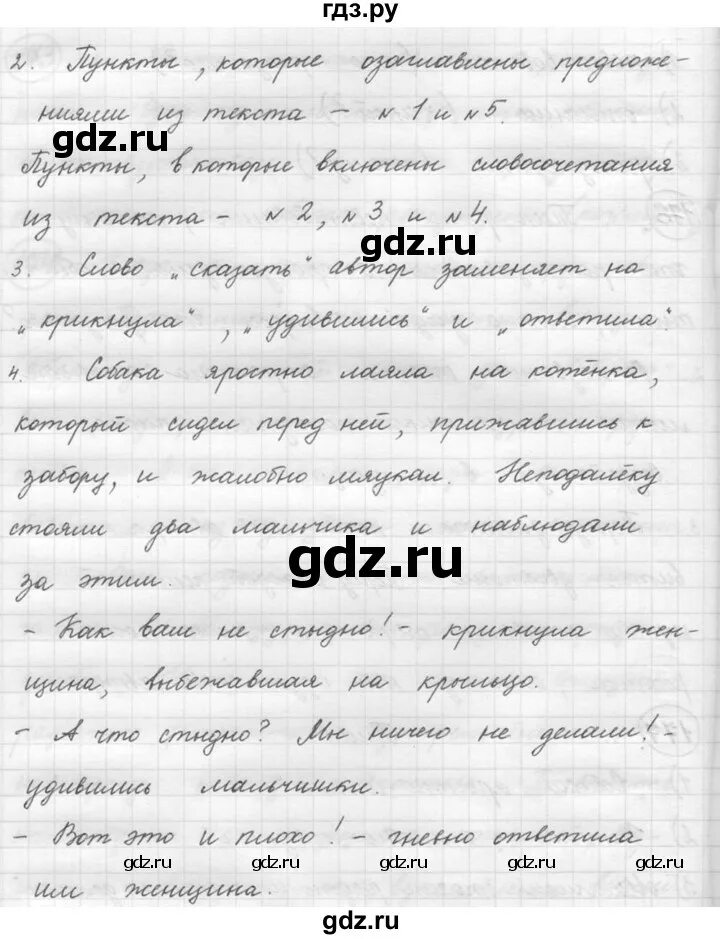 гдз.ру
2. Пункты, которые озаглавлены предложе-
ниями из текста – №1 и №5.
gdz.ru
gdz.ru
Пункты, в которые включены словосочетания
из текста – №2, №3 и №4.
gdz.ru
3. Слово „сказать“ автор заменяет на
„крикнула“, „удивишись“ и „ответила“.
4. Собака яростно лаяла на котёнка,
который сидел перед ней, прижавшись к
забору, и жалобно мяукал. Неподалёку
стояли два мальчика и наблюдали
gdz.ru
gdz.ru
за этим.
– Как вам не стыдно! – крикнула жен-
щина, выбежавшая на крыльцо.
– А что стыдно? Мы ничего не делали! –
удивились мальчишки.
– Вот это и плохо! – гневно ответила
gdz.ru gdz.ru gdz.ru gdz.ru
им женщина.
gdz.ru